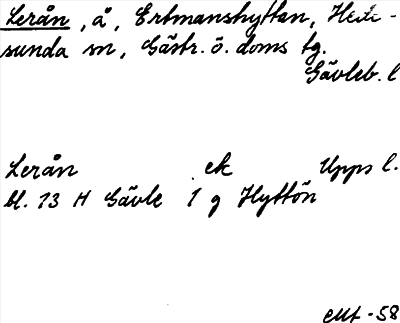 Lerån, å, Ertmanshyttan, Hede-
sunda sn, Gästr. ö. doms tg.
Gävleb. l
Lerån ek Upps l.
bl. 13 H Gävle 1 g Hyttön
-58